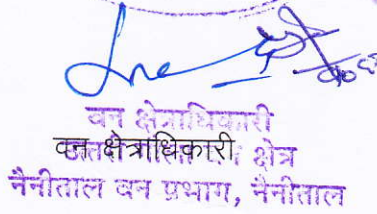 वन क्षेत्राधिकारी
वन क्षेत्राधिकारी
क्षेत्र
नैनीताल वन प्रभाग, नैनीताल